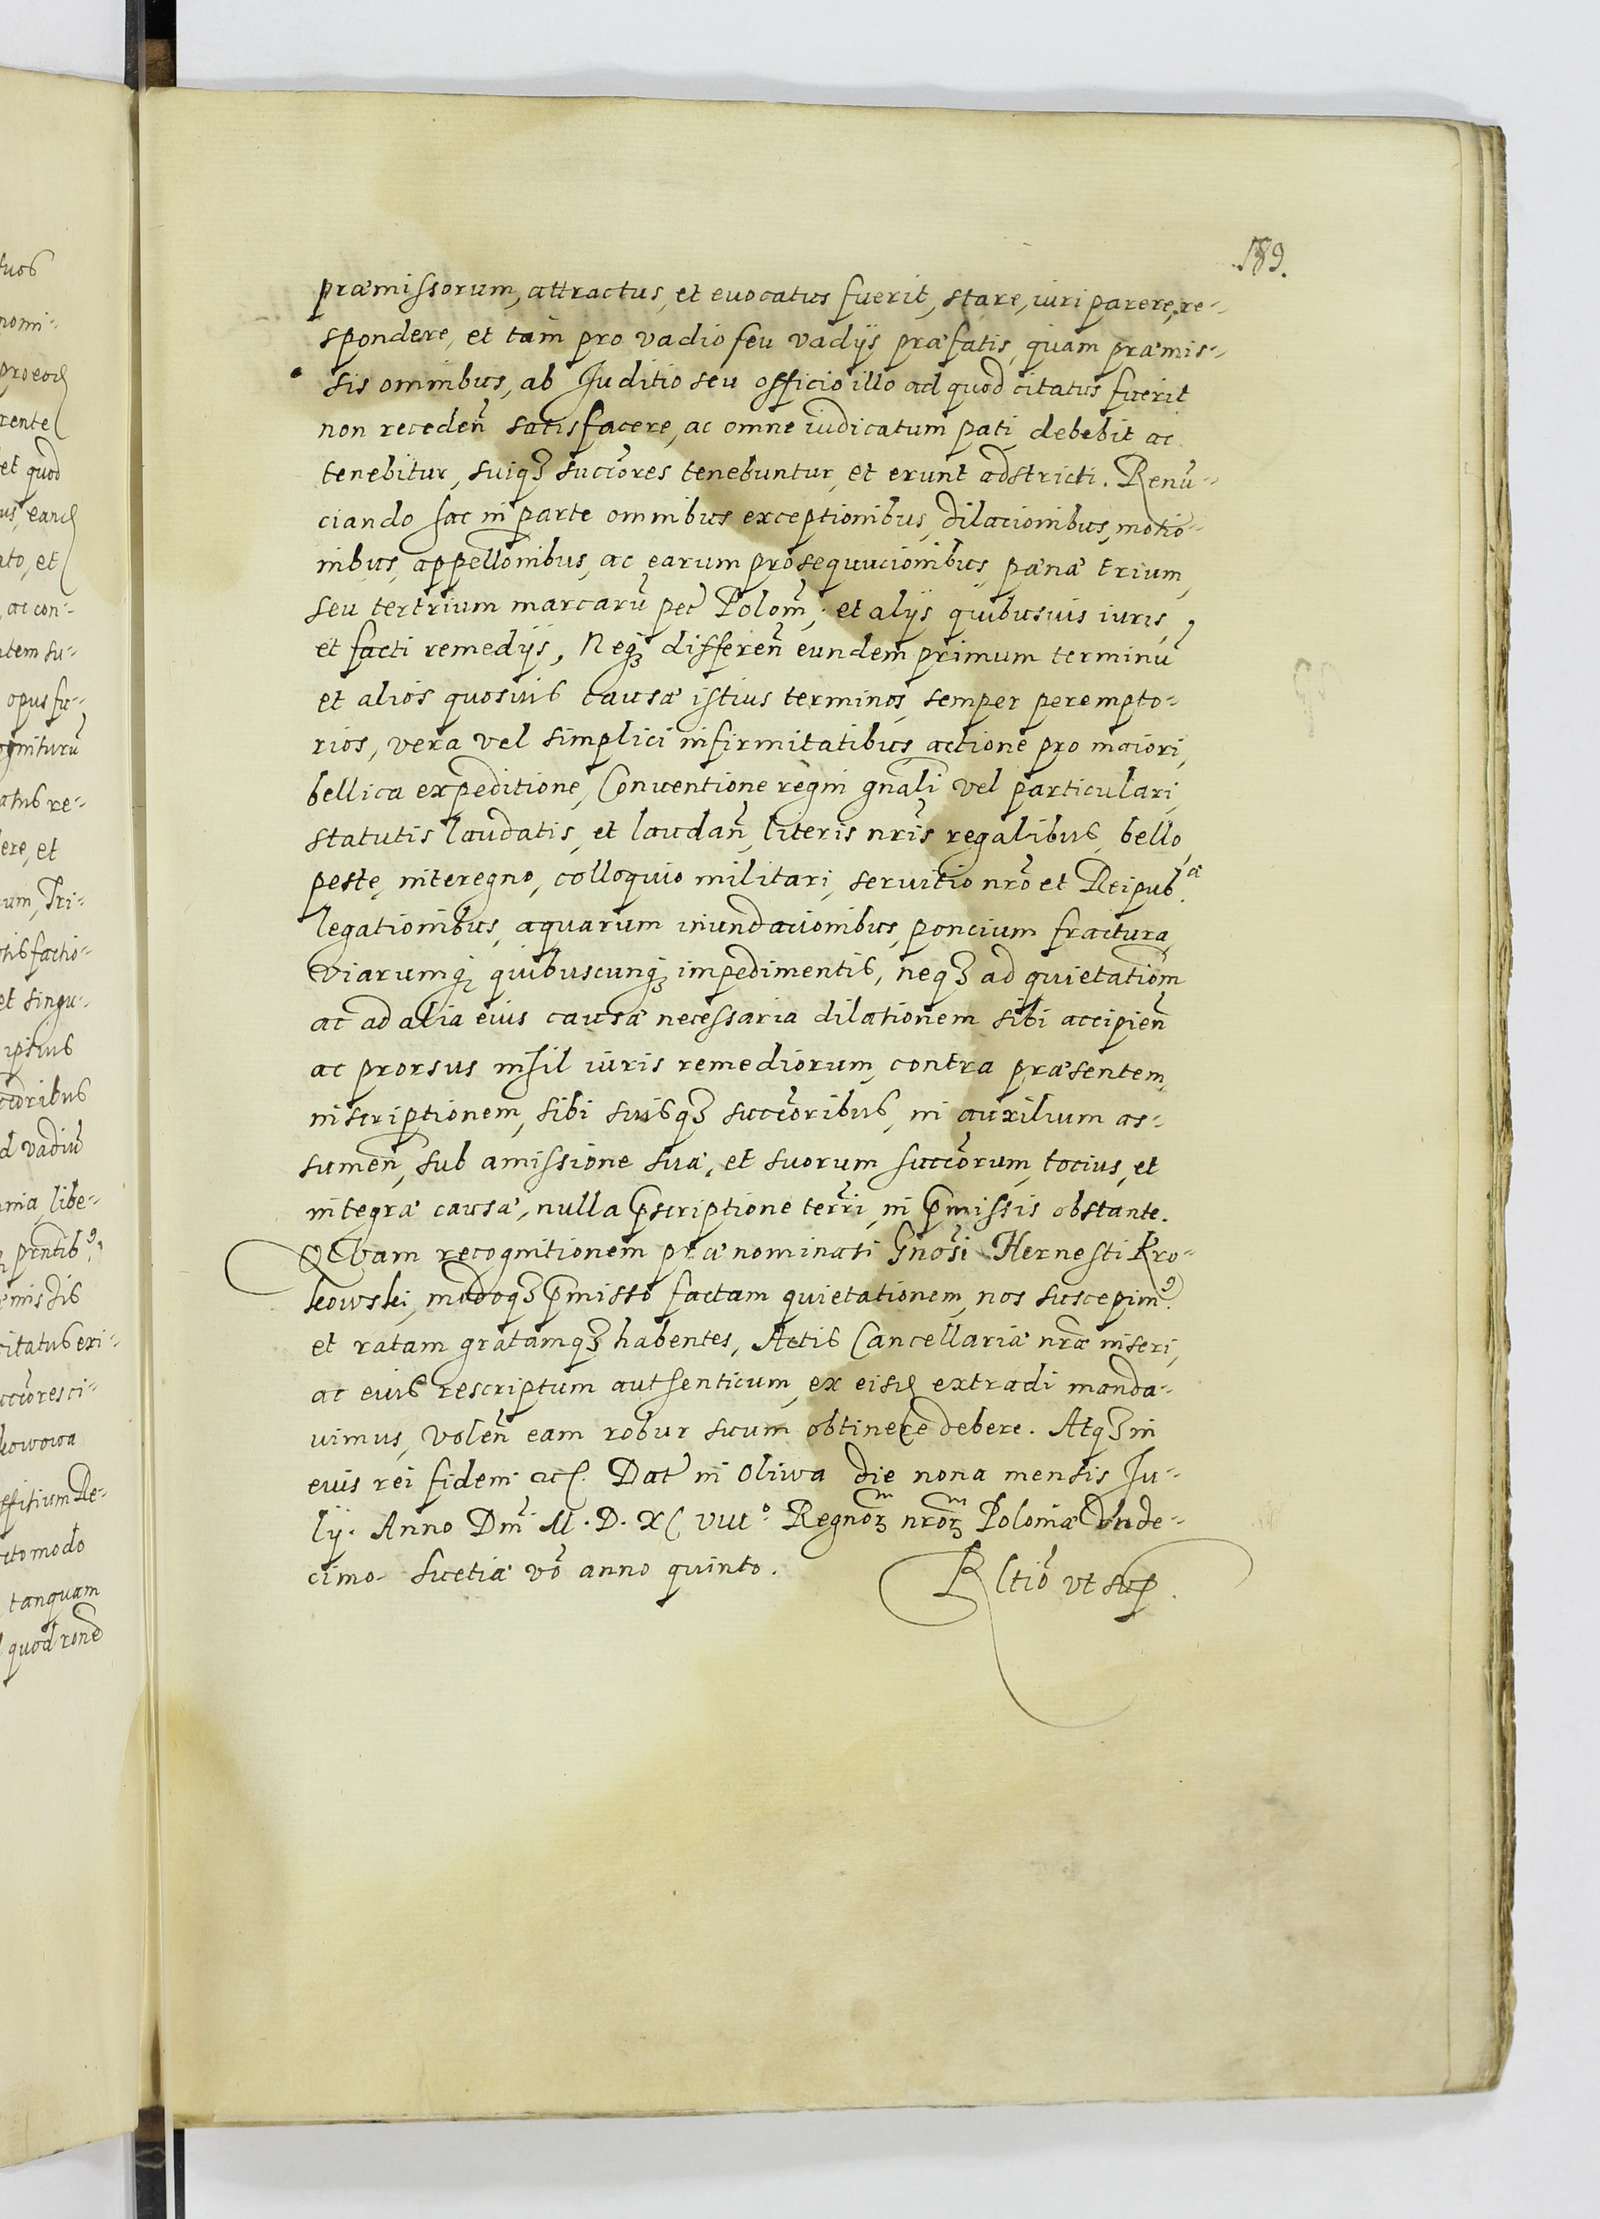 189.
præmissorum, attractus, et euocatus fuerit, stare, iuri parere, re-
spondere, et tam pro vadio seu vadijs præfatis, quam præmis-
sis omnibus, ab Juditio seu officio illo ad quod citatus fuerit
non receden̄ satisfacere, ac omne iudicatum pati debebit ac
tenebitur, suiqȝ succ̄ores tenebuntur, et erunt adstricti. Renū-
ciando hac in parte omnibus exceptionibus, dilacionibus, motio-
nibus, appellōnibus, ac earum prosequucionibus, pænæ trium,
seu ter trium marcarū pec̄ Polon̄, et alijs quibusuis iuris,
et facti remedijs, Neqȝ differen̄ eundem primum terminū
et alios quosuis causæ istius terminos, semper perempto-
rios, vera vel simplici infirmitatibus, actione pro maiori,
bellica expeditione, Conuentione regni gn̄ali vel particulari,
statutis laudatis, et laudan̄, literis nr̄is regalibus, bello,
peste, interegno, colloquio militari, seruitio nr̄o et Reipub.cæ
legationibus, aquarum inundacionibus, poncium fractura,
viarumqȝ quibuscunqȝ impedimentis, neqȝ ad quietatiōm
ac ad alia eius causæ necessaria dilationem sibi accipien̄
ac prorsus nihil iuris remediorum, contra præsentem,
inscriptionem, sibi suisqȝ succ̄oribus, in auxilium as-
sumen̄, sub amissione suæ, et suorum succ̄orum, tocius, et
integræ causæ, nulla p̄scriptione terr̄i, in p̄missis obstante.
QVam recognitionem prænominati Gn̄osi Hernesti Kro-
kowski, modoqȝ p̄misso factam quietationem, nos suscepim⁹
et ratam gratamqȝ habentes, Actis Cancellariæ nr̄æ inseri,
ac eius rescriptum authenticum, ex eisd extradi manda-
uimus, volen̄ eam robur suum obtinere debere. Atqȝ in
eius rei fidem etc. Dat̄ in Oliwa die nona mensis Ju-
lij. Anno Dnī M.D.XC viiio Regnor̄ nr̄or̄ Poloniæ Vnde-
cimo Suetiæ vō anno quinto.
R ltiō vt sup.